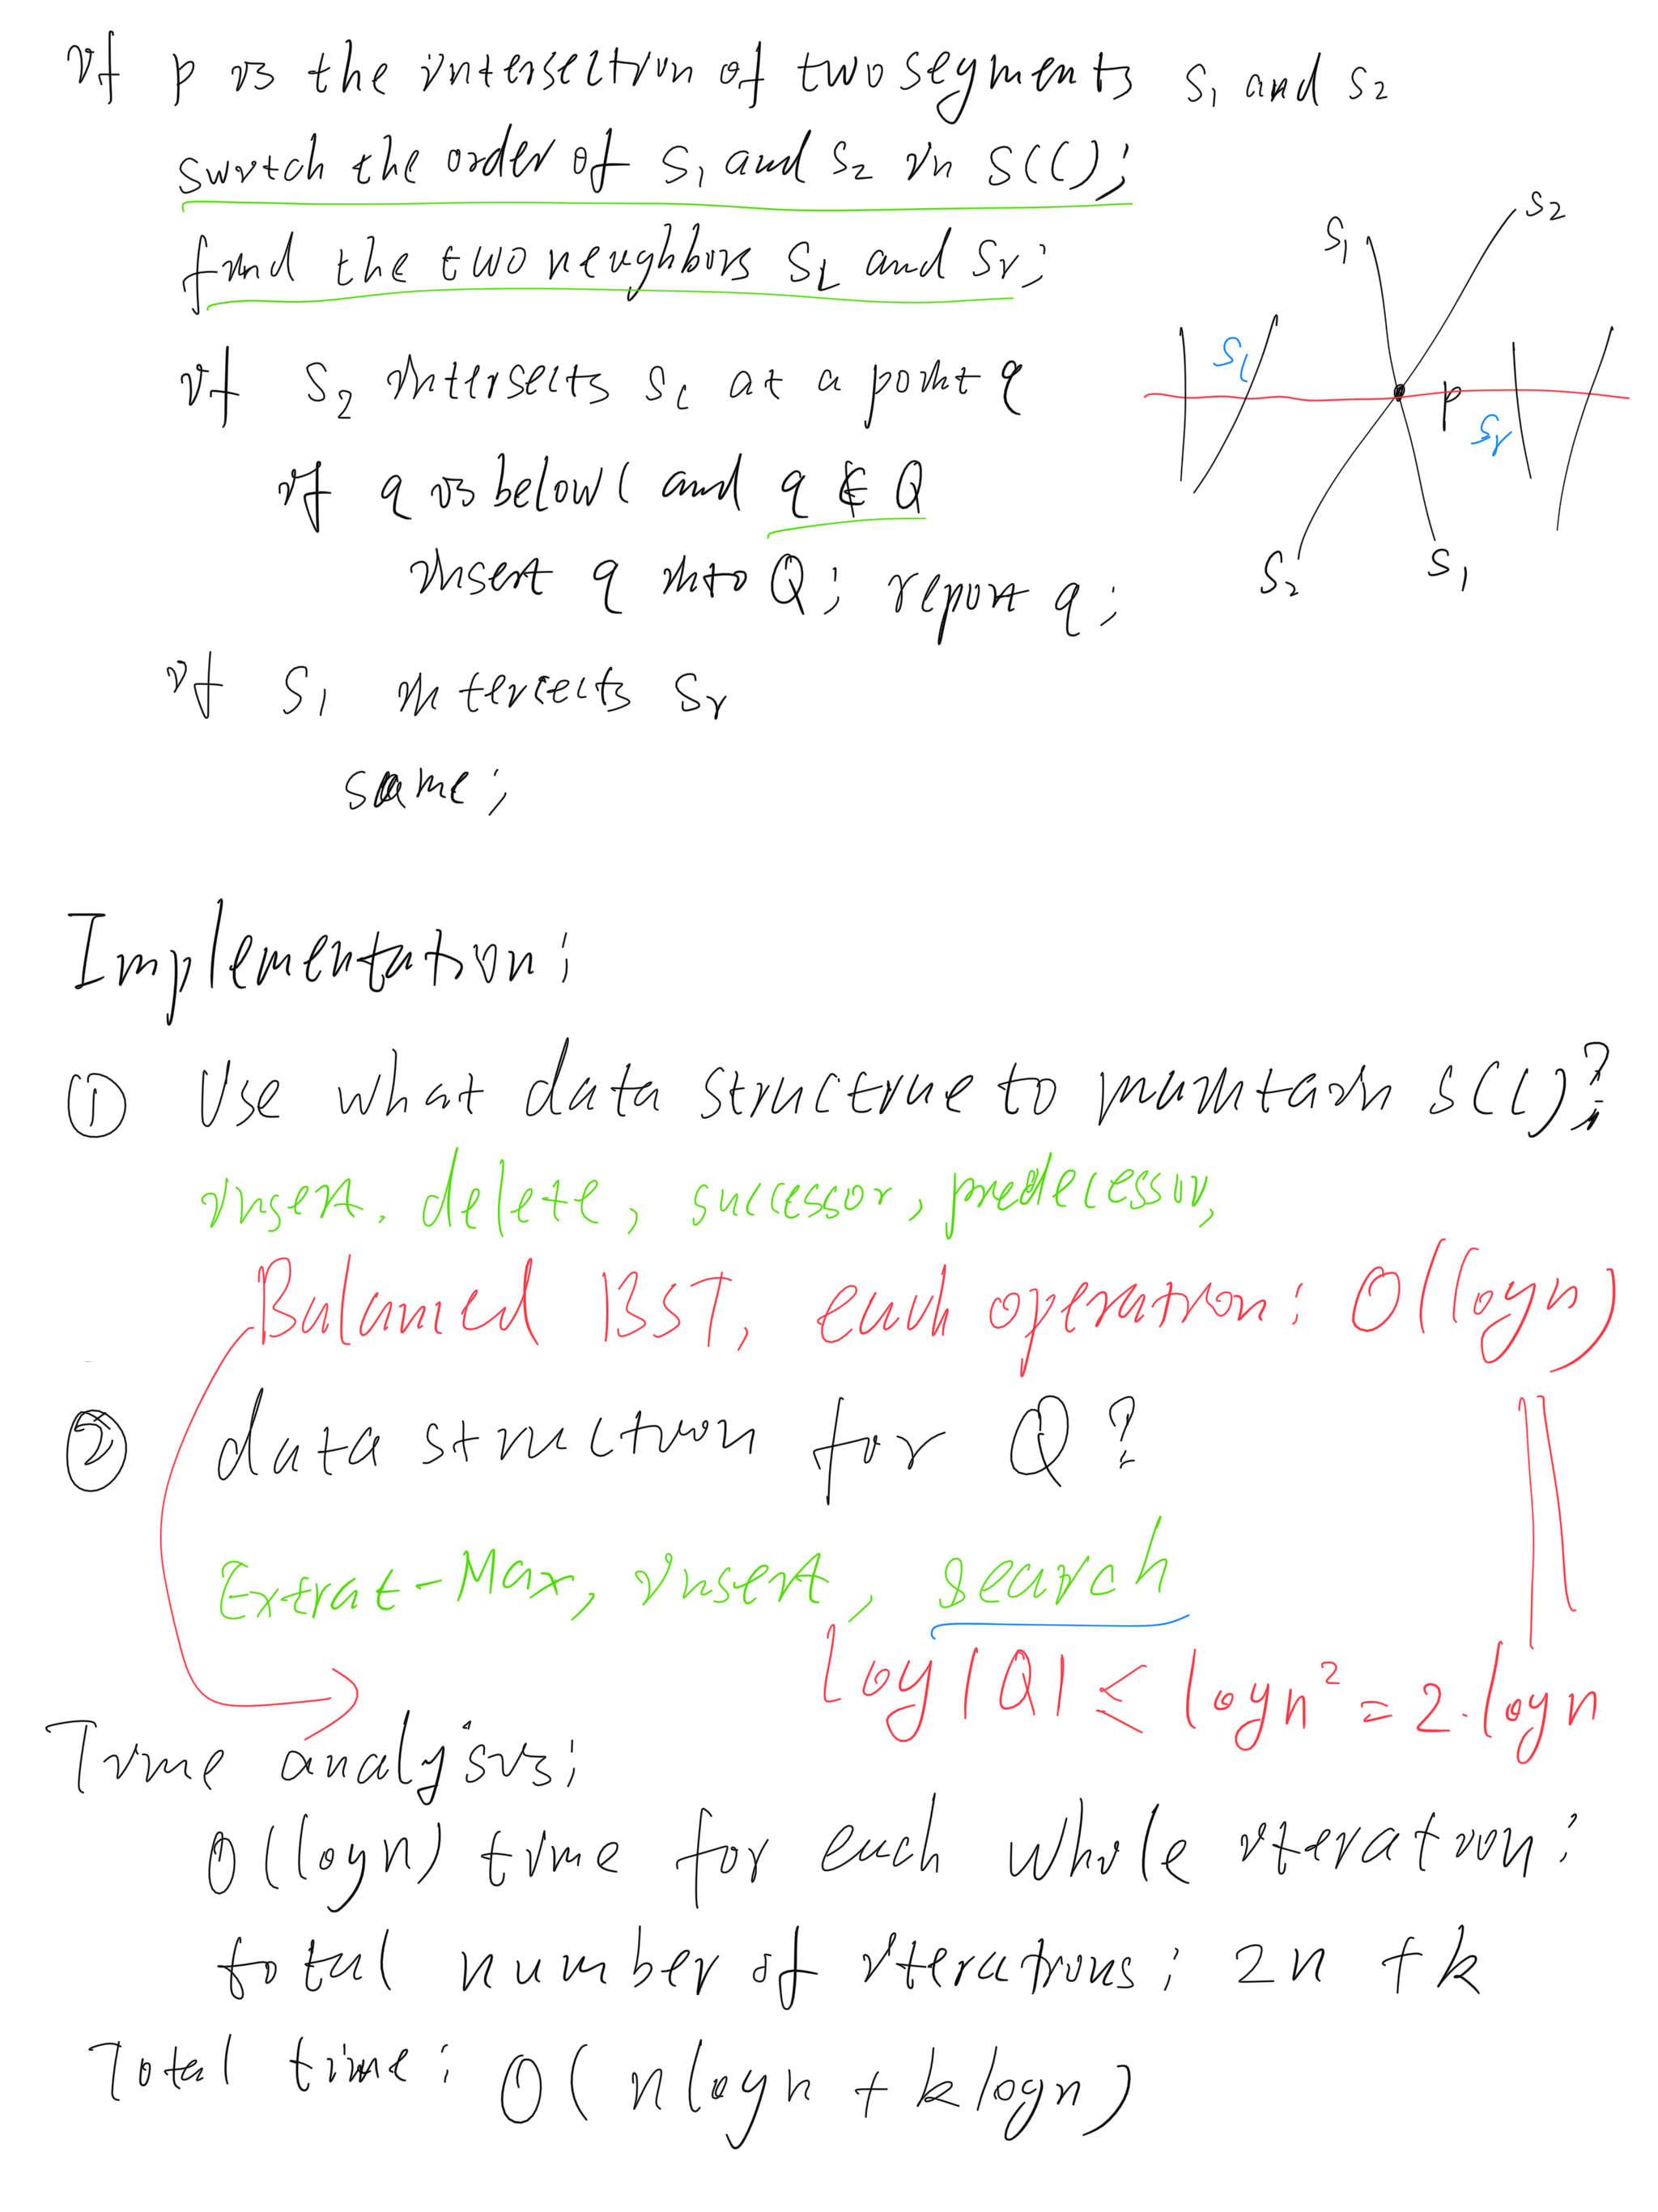 if p is the intersection of two segments s1 and s2
switch the order of s1 and s2 in S(l);
find the two neighbors sl and sr;
if s2 intersects sl at a point q
if q is below l and q ∉ Q
insert q into Q; report q;
if s1 intersects sr
same;
s1
s2
sl
p
sr
s2
s1
Implementation:
① Use what data structrue to maintain S(l)?
insert. delete, successor, predecessor,
Balanced BST, each operation: O(logn)
② data struction for Q?
Extrat-Max, insert, search
log|Q| ≤ logn² = 2·logn
Time analysis:
O(logn) time for each whole iteration:
total number of iterations: 2n + k
Total time: O(nlogn + klogn)